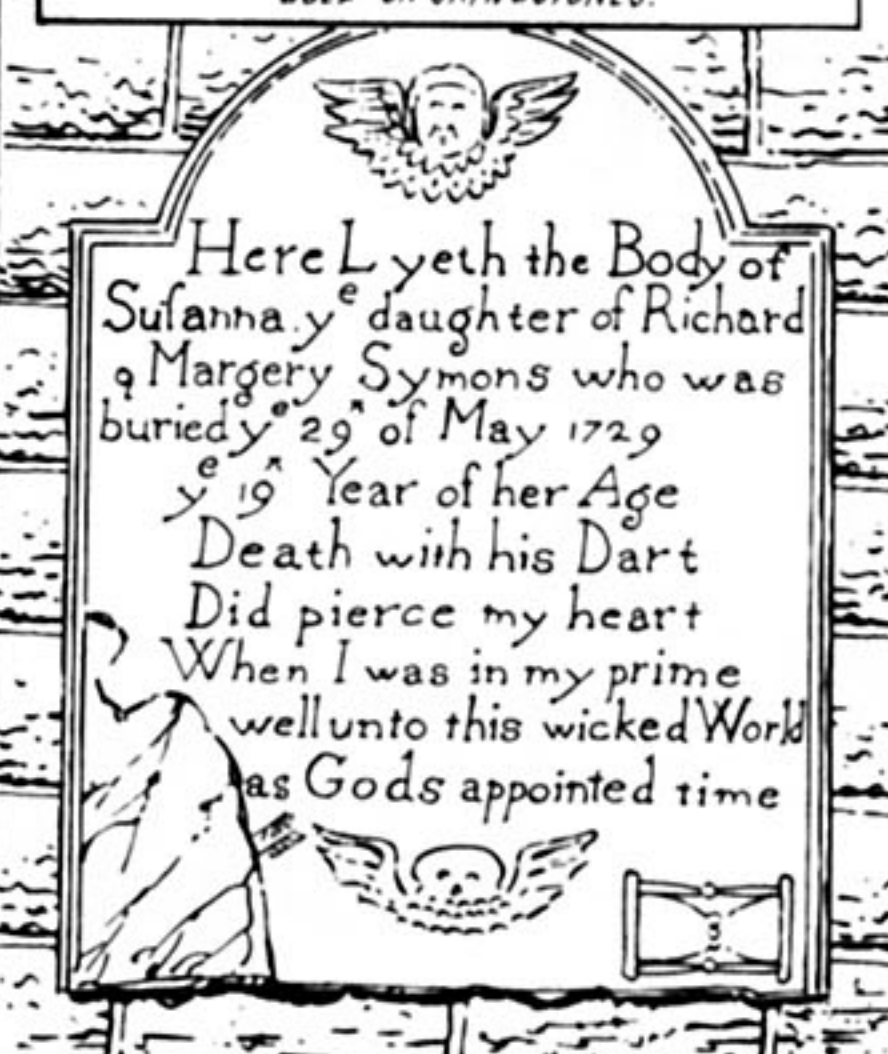 Here Lyeth the Body of
Suſanna yᵉ daughter of Richard
& Margery Symons who was
buried yᵉ 29ᵗʰ of May 1729
yᵉ 19ᵗʰ Year of her Age
Death with his Dart
Did pierce my heart
When I was in my prime
well unto this wicked World
as Gods appointed time